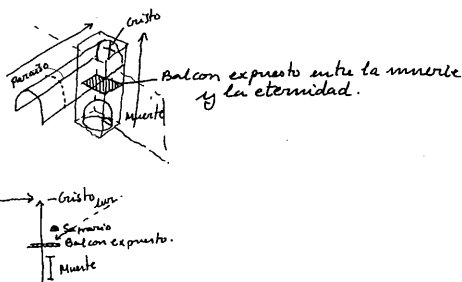 Cristo
Paraiso
Balcon expuesto entre la muerte
y la eternidad.
Muerte
Cristo luz.
Sagrario
Balcon expuesto.
Muerte